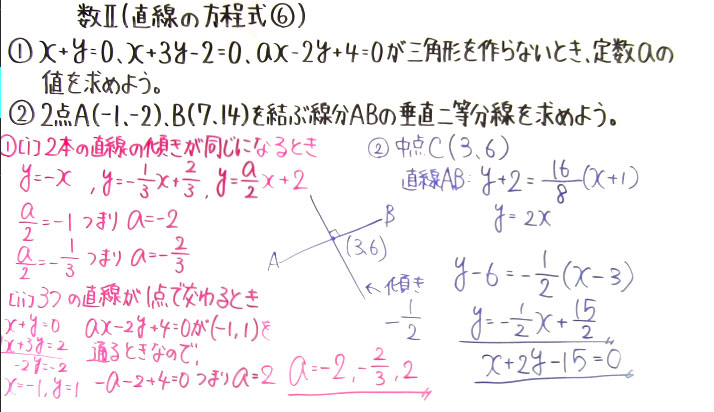 数Ⅱ(直線の方程式⑥)
① x+y=0、x+3y-2=0、ax-2y+4=0が三角形を作らないとき、定数aの
値を求めよう。
② 2点A(-1,-2)、B(7,14)を結ぶ線分ABの垂直二等分線を求めよう。
①(i)2本の直線の傾きが同じになるとき
y=-x , y=-1/3x+2/3 , y=a/2x+2
a/2=-1 つまり a=-2
a/2=-1/3 つまり a=-2/3
(ii)3つの直線が1点で交わるとき
x+y=0
x+3y=2
-2y=-2
x=-1, y=1
ax-2y+4=0が(-1,1)を
通るときなので、
-a-2+4=0 つまり a=2
a=-2, -2/3, 2
② 中点C(3,6)
直線AB: y+2=16/8(x+1)
y=2x
A
B
(3,6)
←傾き
-1/2
y-6=-1/2(x-3)
y=-1/2x+15/2
x+2y-15=0